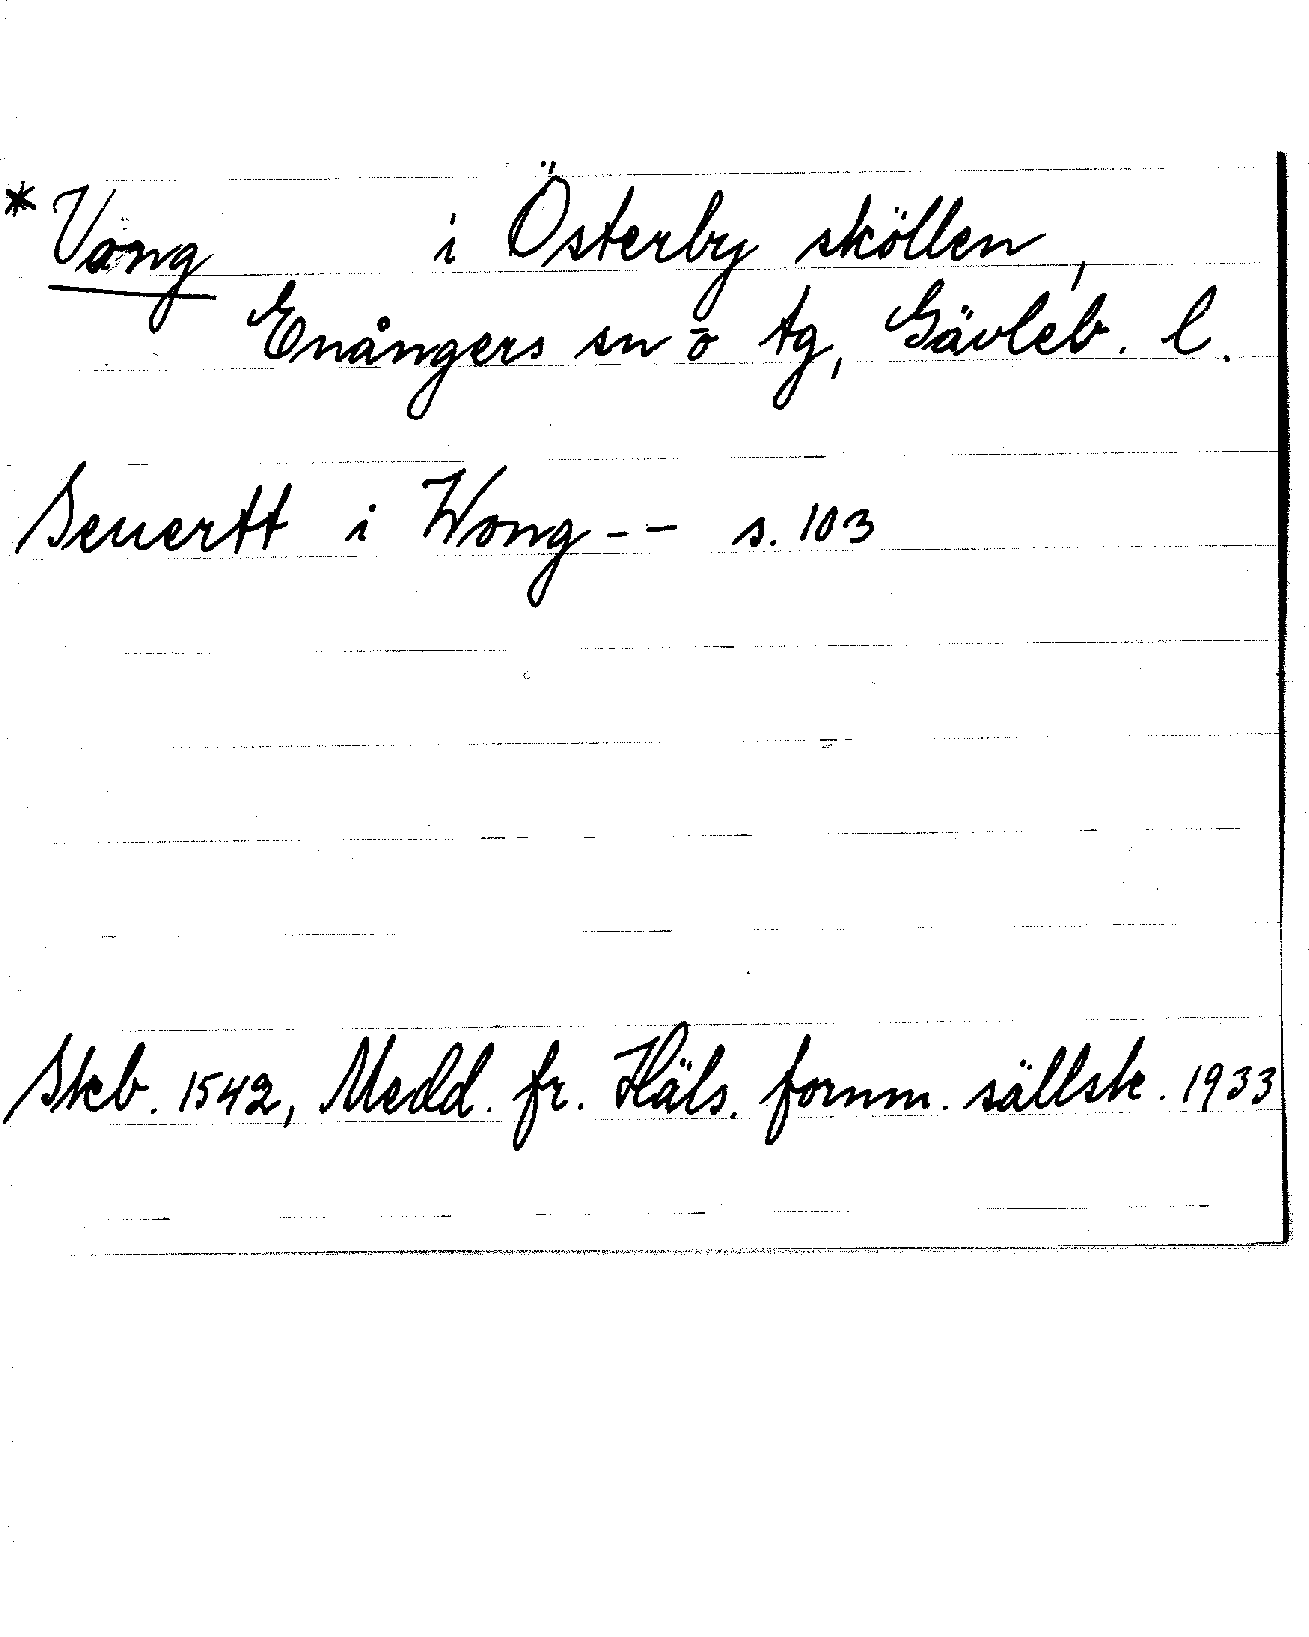 * Vång i Österby sköllen,
Enångers sn o tg, Gävleb. l.
Seuertt i Wong -- s. 103
Skb. 1542, Medd. fr. Häls. fornm. sällsk. 1933